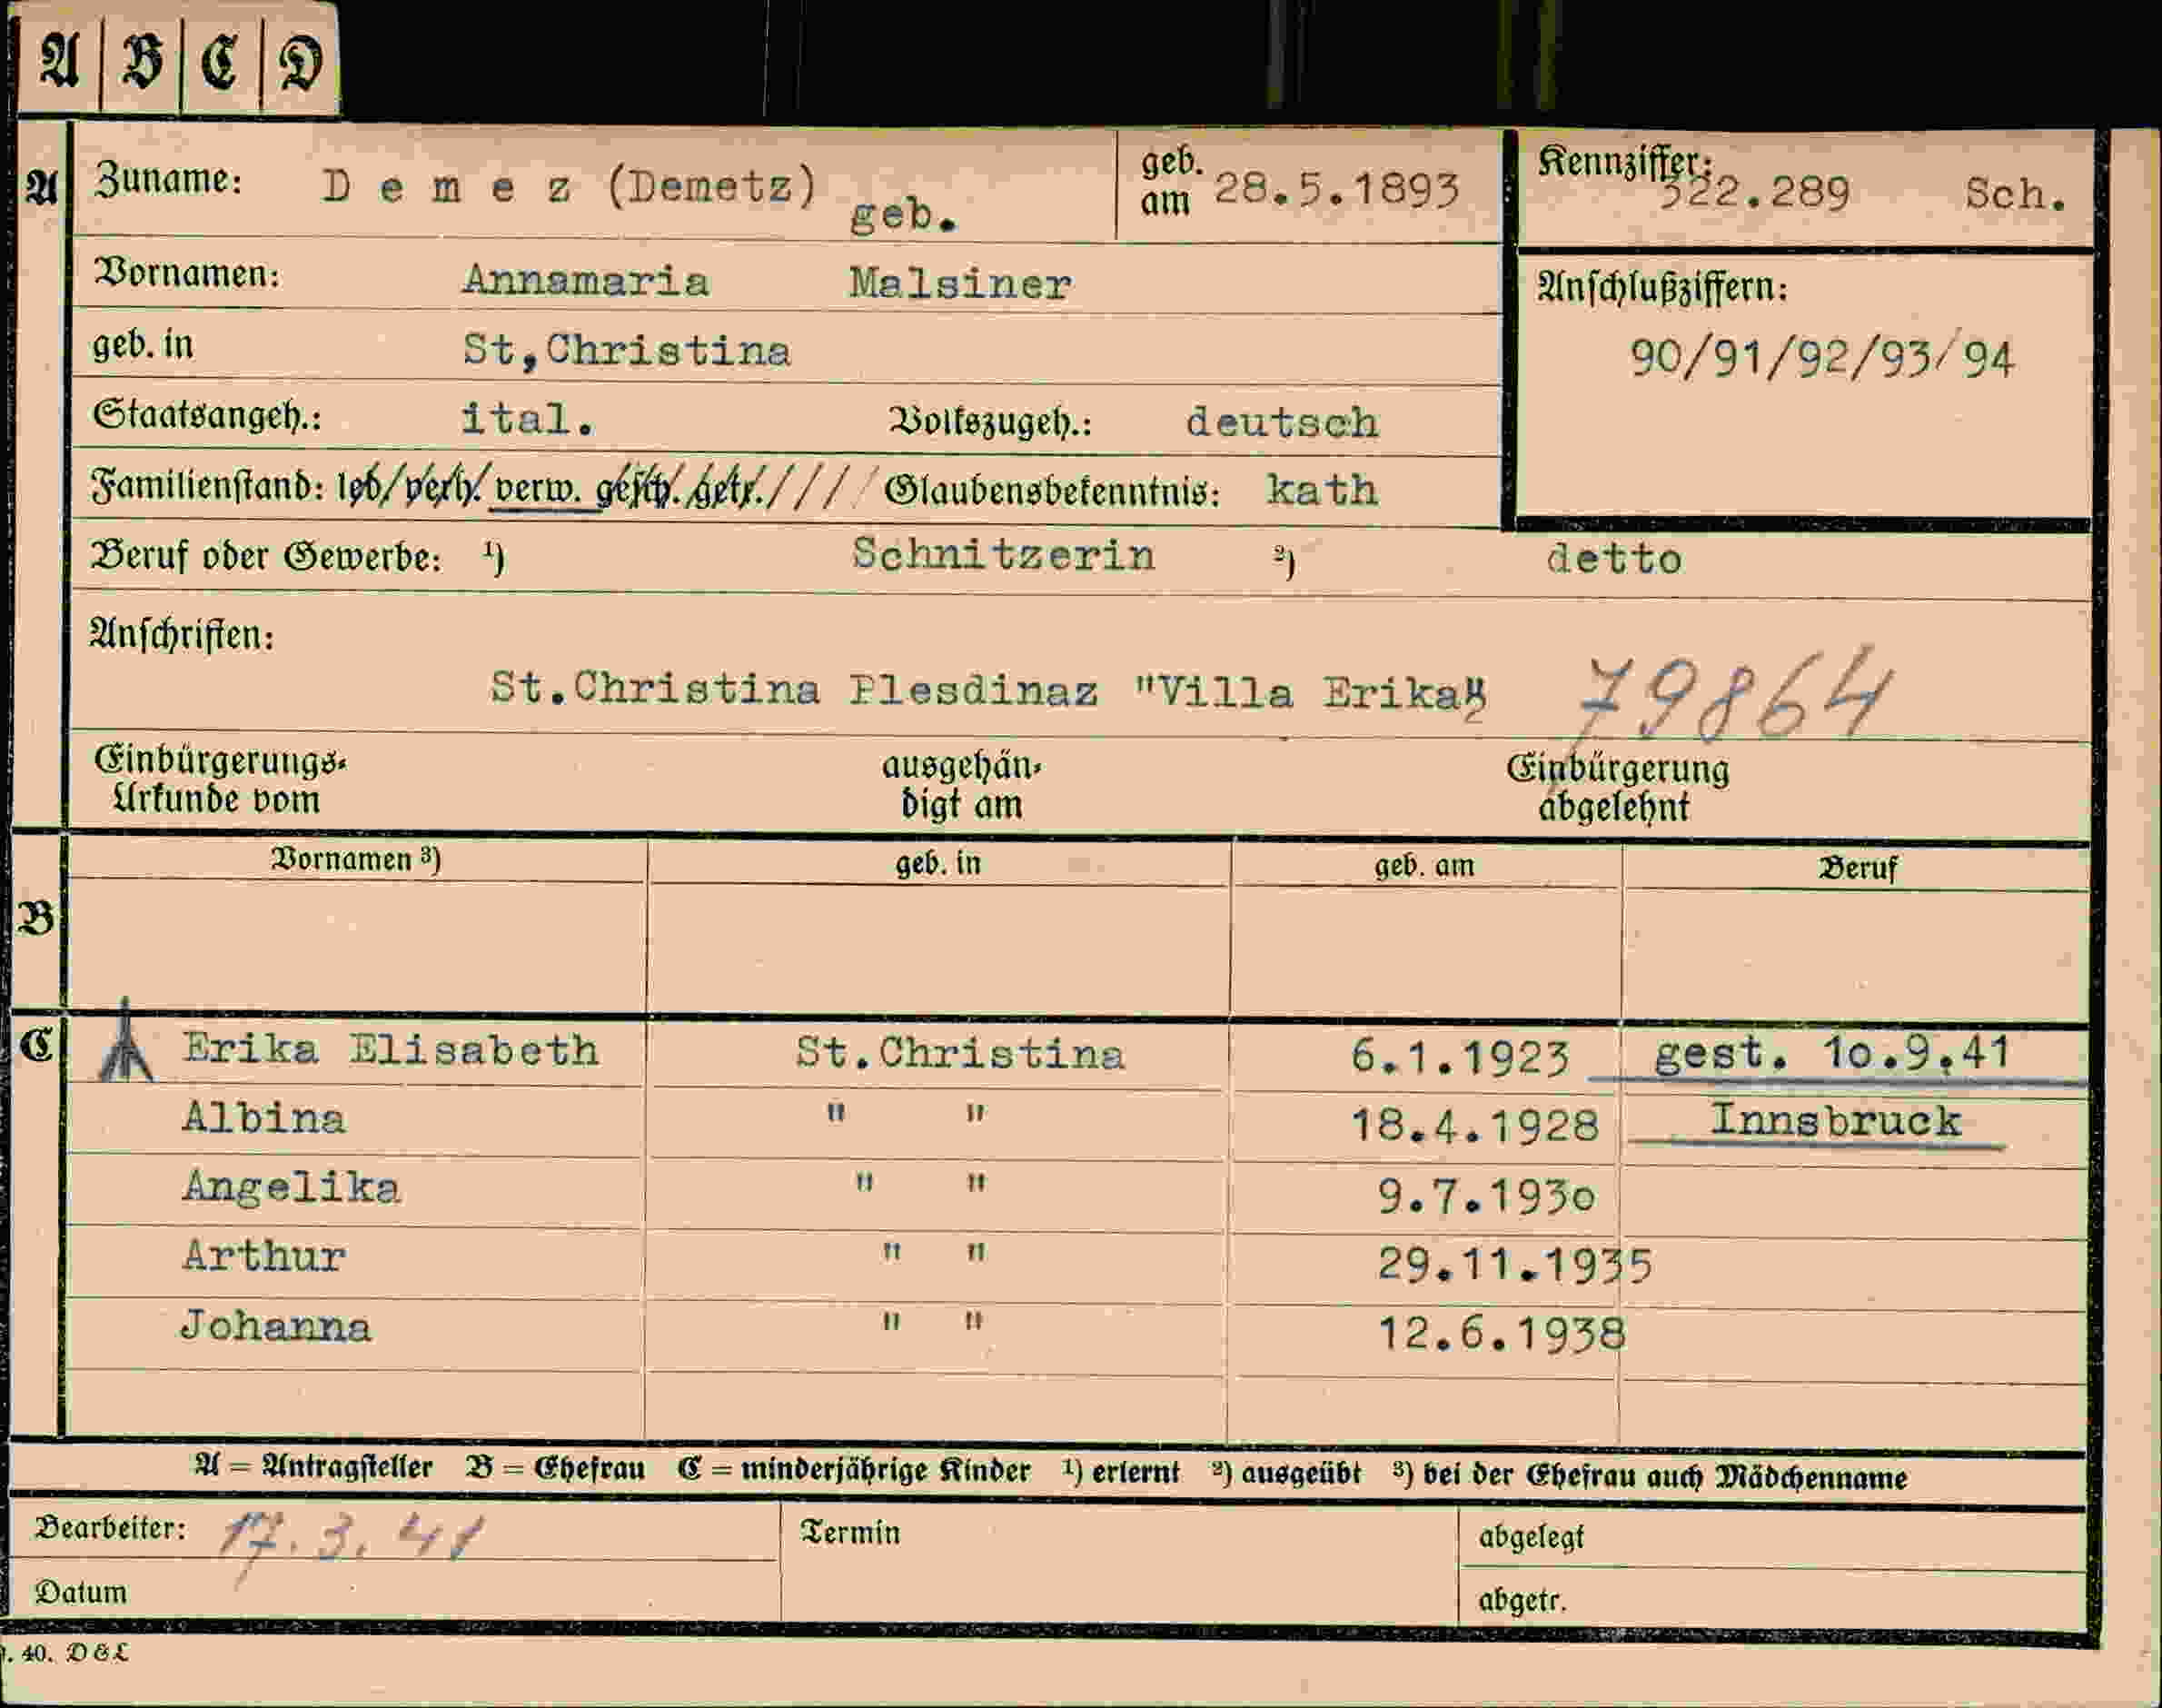 A B C D
A Zuname: D e m e z (Demetz) geb. geb. am 28.5.1893 Kennziffer: 322.289 Sch.
Vornamen: Annamaria Malsiner Anschlußziffern:
geb. in St,Christina 90/91/92/93/94
Staatsangeh.: ital. Volkszugeh.: deutsch
Familienstand: led/verh. verw. gesch. getr.//// Glaubensbekenntnis: kath
Beruf oder Gewerbe: ¹) Schnitzerin ²) detto
Anschriften:
St.Christina Plesdinaz "Villa Erika" 79864
Einbürgerungs- ausgehän- Einbürgerung
Urkunde vom digt am abgelehnt
Vornamen ³) geb. in geb. am Beruf
B
C Erika Elisabeth St.Christina 6.1.1923 gest. 10.9.41
Albina " " 18.4.1928 Innsbruck
Angelika " " 9.7.1930
Arthur " " 29.11.1935
Johanna " " 12.6.1938
A = Antragsteller B = Ehefrau C = minderjährige Kinder ¹) erlernt ²) ausgeübt ³) bei der Ehefrau auch Mädchenname
Bearbeiter: 17.3.41 Termin abgelegt
Datum abgetr.
. 40. D & L